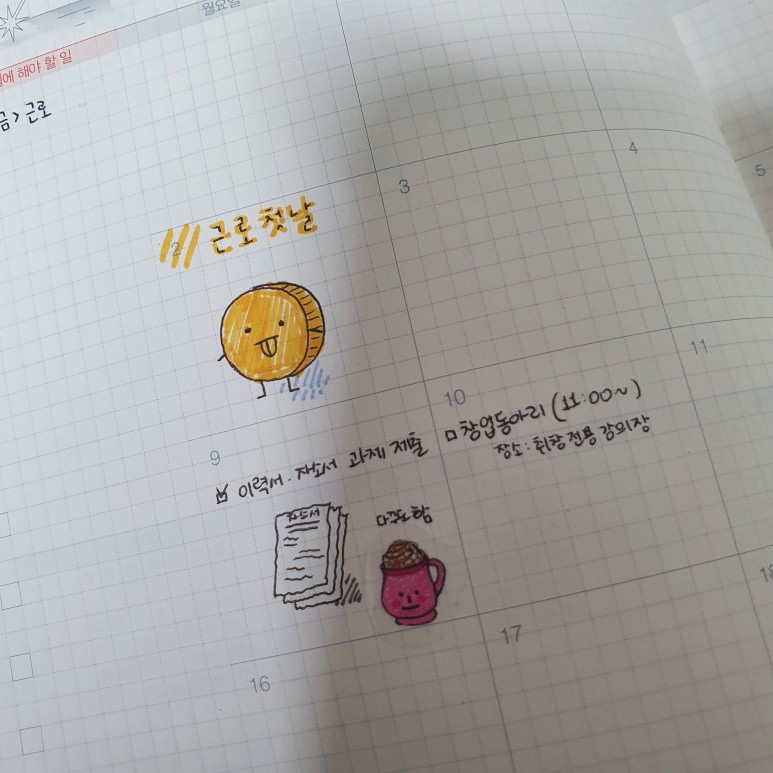 월요일
에 해야 할 일
금 > 근로
2
근로 첫날
3
4
5
9
이력서. 자소서 과제 제출
자소서
다꾸도 함
10
창업동아리 (11:00~)
장소: 취창 전용 강의장
11
16
17
18